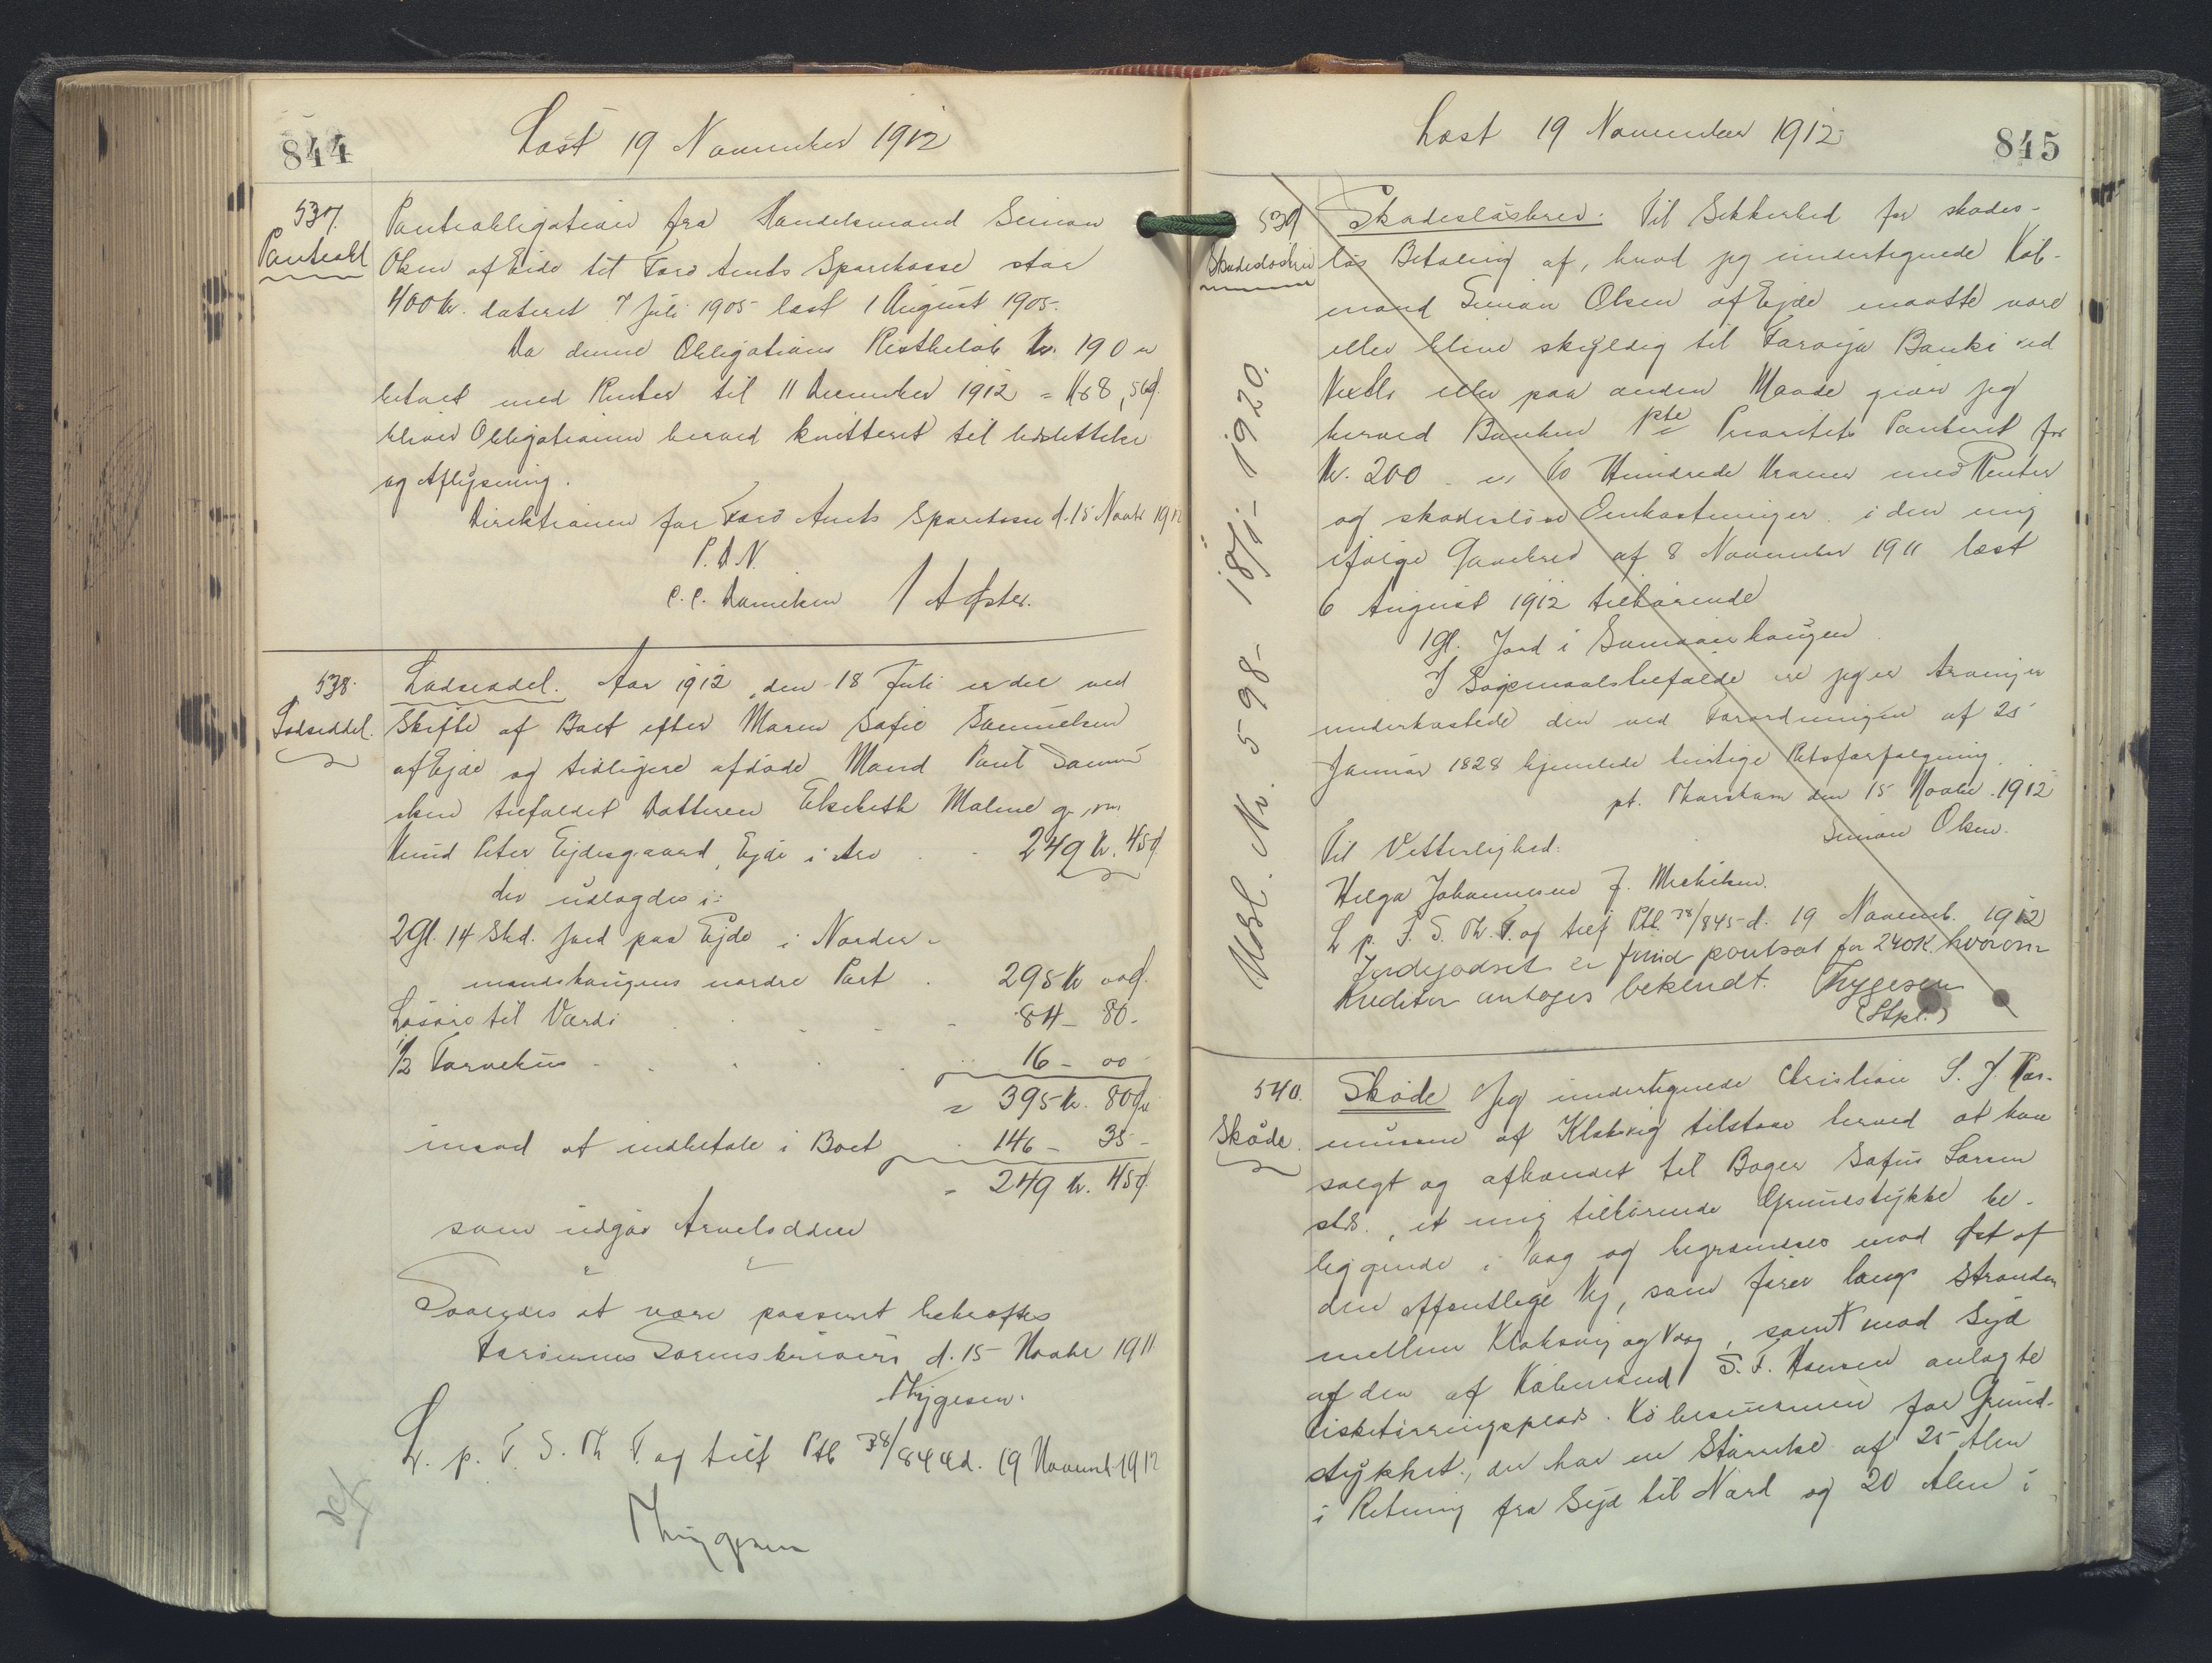 844
Læst 19 November 1912
537.
Panteobl
Panteobligation fra Handelsmand Simon
Olsen af Eide til Færø Amts Sparekasse stor
400 Kr. dateret 7 Juli 1905 læst 1 August 1905.
Da denne Obligations Restbeløb Kr. 190 er
betalt med Renter til 11 December 1912 = Kr 8,
bliver Obligationen herved kvitteret til Udslettelse
og Aflysning.
Direktionen for Færø Amts Sparekasse d. 15 Novbr 1912
P. D. V.
C. C. Danielsen
538.
Lodseddel.
Lodseddel. Aar 1912, den 18 Juli er der ved
Skifte af Boet efter Maren Sofie Samuelsen
af Ejde og tidligere afdøde Mand Poul Samu-
elsen tilfaldet Datteren Elsebeth Maline g. m.
Knud Peter Ejdesgaard, Ejde i Arv 249 Kr. 45 Ø.
der udlagdes i:
2 Gl. 14 Skd. Jord paa Ejde i Norder-
mandshaugens nordre Part 295 Kr 00 Ø.
Løsøre til Værdi 84 - 80 -
1/2 Tørvehus 16 - 00
= 395 Kr. 80 Ø.
imod at indbetale i Boet 146 - 35 -
= 249 Kr. 45 Ø.
som udgør Arvelodden
Saaledes at være passeret bekræftes
Færøernes Sorenskriveri d. 15 Novbr 1911
Thygesen.
L. p. F. S. Th T. og tilf Ptb 38/844 d. 19 Novemb 1912
Thygesen
Læst 19 November 1912
845
539
Skadesløsbrev
Udsl. Nr. 598 - 18/1 - 1920.
Skadesløsbrev. Til Sikkerhed for skades-
løs Betaling af, hvad jeg undertegnede Køb-
mand Simon Olsen af Ejde maatte være
eller blive skyldig til Færøja Banki ved
Vexlr eller paa anden Maade giver jeg
herved Banken 1ste Prioritets Panteret for
Kr. 200 - er To Hundrede Kroner med Renter
og skadesløse Omkostninger i den mig
ifølge Gavebrev af 8 November 1911 læst
6 August 1912 tilhørende
1 Gl. Jord i haugen
I Søgsmaalstilfælde er jeg er Arvinger
underkastede den ved Forordningen af 25
Januar 1828 hjemlede hurtige Retsforfølgning.
pt. Thorshavn den 15 Novbr. 1912
Simon Olsen.
Til Vitterlighed:
Helga Johannesen J. Mikkelsen.
L p. F. S. Th. T. og tilf Ptb. 38/845 d. 19 Novemb. 1912
Jordegodset er forud pantsat for 240 K. hvorom
Kreditor antages bekendt. Thygesen
(Stpl.)
540.
Skøde.
Skøde Jeg undertegnede Christian S. J. Ras-
mussen af Klaksvig tilstaar herved at have
solgt og afhændet til Bager Sofus Larsen
stds., et mig tilhørende Grundstykke be-
liggende i Vaag og begrændses mod Øst af
den offentlige Vej, som fører langs Stranden
mellem Klaksvig og Vaag, samt mod Syd
af den af Købmand S. F. Hansen anlagte
Fisketørringsplads. Købesummen for Grund-
stykket, der har en Størrelse af 25 Alen
i Retning fra Syd til Nord og 20 Alen i